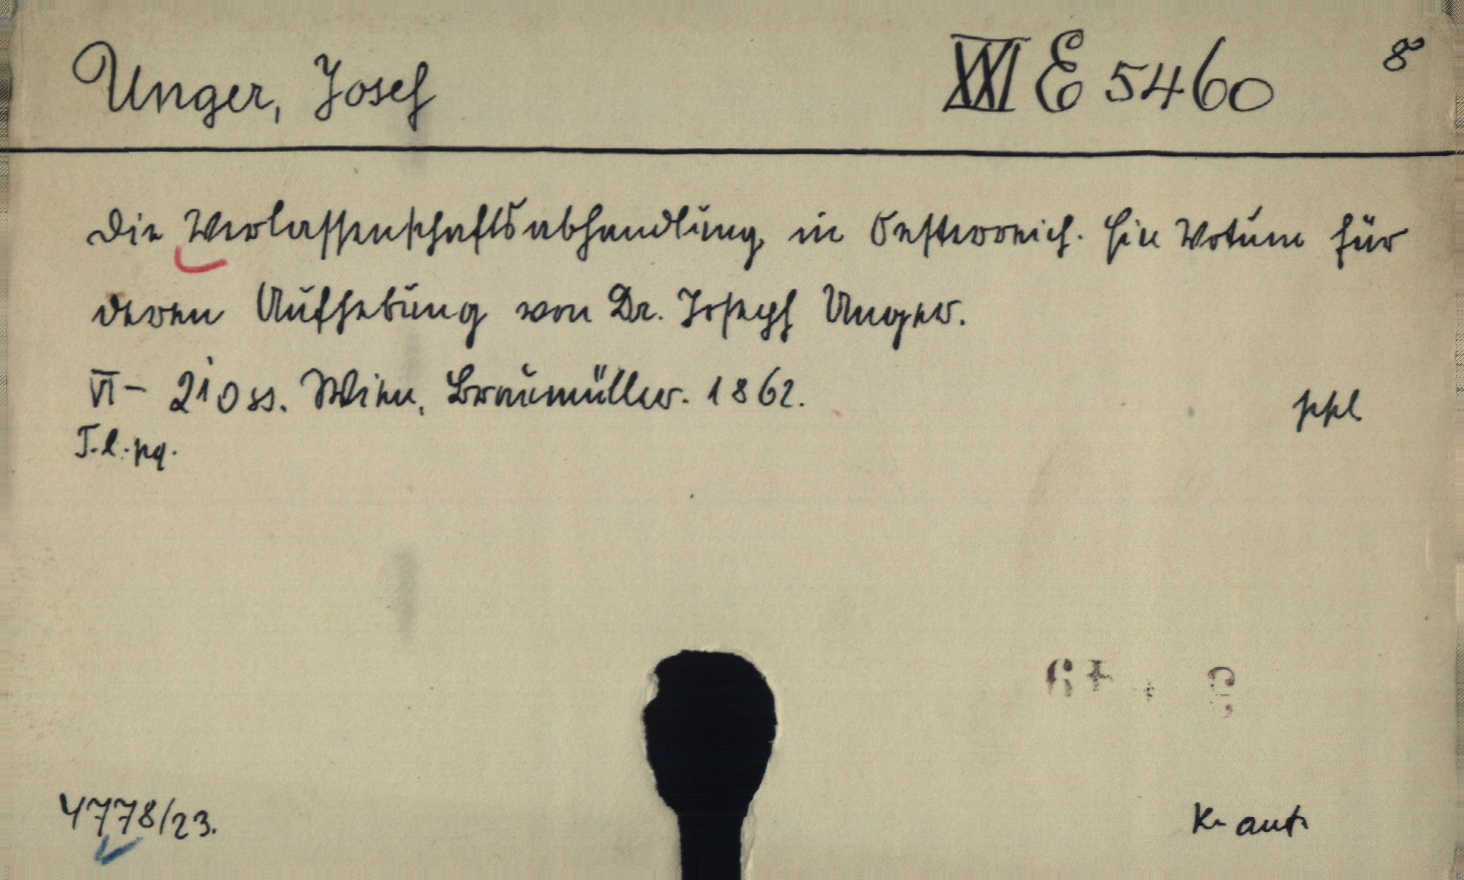 Unger, Josef XXI E 5460 8°
Die Verlassenschaftsabhandlung in Oesterreich. Ein Votum für
deren Aufhebung von Dr. Joseph Unger.
VI - 210 ss. Wien, Braumüller. 1862. ppl
T. l. pq.
4778/23. K- ant.